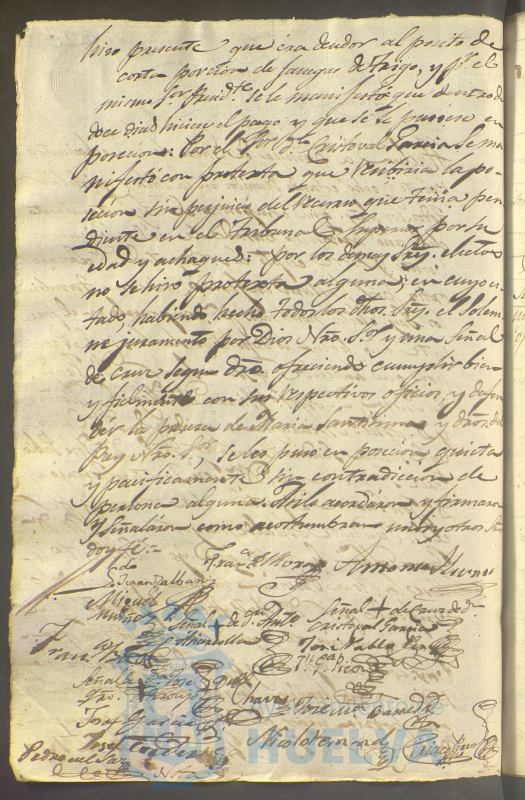 hizo presente que era deudor al posito de
corta porcion de fanegas de trigo, y pr. el
mismo Sor Presidte. se le manifestó que dentro de
doce dias hiciese el pago y que se le pusiese en
posecion: Por el Sor Dn. Cristoval Garcia se ma
nifestó con protexta que recibiria la po-
secion sin perjuicio del recurso que tenia pen
diente en el Tribunal Superior por su
edad y achaques: por los demas Srs. electos
no se hizo protexta alguna: en cuyo es
tado, habiendo hecho todos los dhos. Srs. el solem
ne juramento por Dios Ntro. Sor. y una señal
de Cruz segun dro. ofreciendo cumplir bien
y fielmente con sus respectivos oficios, y defen
der la pureza de Maria Santisima y dros. del
Rey Ntro. Sor., se les puso en posecion quieta
y pacificamente sin contradiccion de
persona alguna. Asi lo acordaron y firmaron
y señalaron como acostumbran unos y otros
doy fe.-
Franco. Moro Antonio
Juan Dalban
Miguel
Muñoz Señal de
Señal + de Cruz de Dn.
Cristoval Garcia
Jose Pablo
Señal de
Jose Garcia
Josef
Pedro del
HUELVA